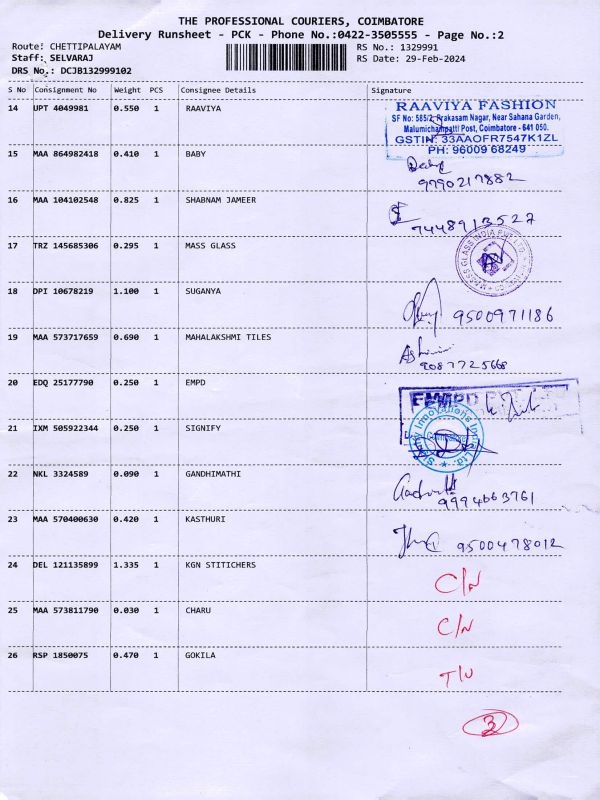 THE PROFESSIONAL COURIERS, COIMBATORE
Delivery Runsheet - PCK - Phone No.:0422-3505555 - Page No.:2
Route: CHETTIPALAYAM RS No.: 1329991
Staff: SELVARAJ RS Date: 29-Feb-2024
DRS No.: DCJB132999102
S No Consignment No Weight PCS Consignee Details Signature
14 UPT 4049981 0.550 1 RAAVIYA
RAAVIYA FASHION
SF No: 585/2, Prakasam Nagar, Near Sahana Garden,
Malumichampatti Post, Coimbatore - 641 050.
GSTIN: 33AAOFR7547K1ZL
PH: 96009 68249
15 MAA 864982418 0.410 1 BABY
9790217882
16 MAA 104102548 0.825 1 SHABNAM JAMEER
7448913527
17 TRZ 145685306 0.295 1 MASS GLASS
MASS GLASS INDIA PVT LTD
18 DPI 10678219 1.100 1 SUGANYA
9500971186
19 MAA 573717659 0.690 1 MAHALAKSHMI TILES
9087725668
20 EDQ 25177790 0.250 1 EMPD
EMPD
21 IXM 505922344 0.250 1 SIGNIFY
Signify Innovations India Ltd.
22 NKL 3324589 0.090 1 GANDHIMATHI
9994663761
23 MAA 570400630 0.420 1 KASTHURI
9500478012
24 DEL 121135899 1.335 1 KGN STITICHERS
C/N
25 MAA 573811790 0.030 1 CHARU
C/N
26 RSP 1850075 0.470 1 GOKILA
T/U
3